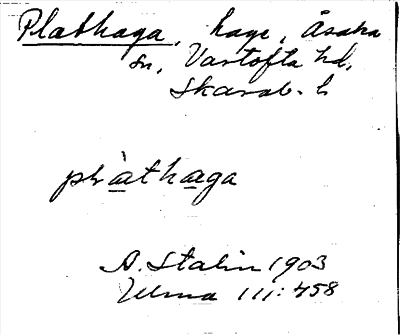 Plathaga, hage, Åsaka
sn, Vartofta hd,
Skarab. l.
plàthaga
A. Stalin 1903
Ulma 111:458